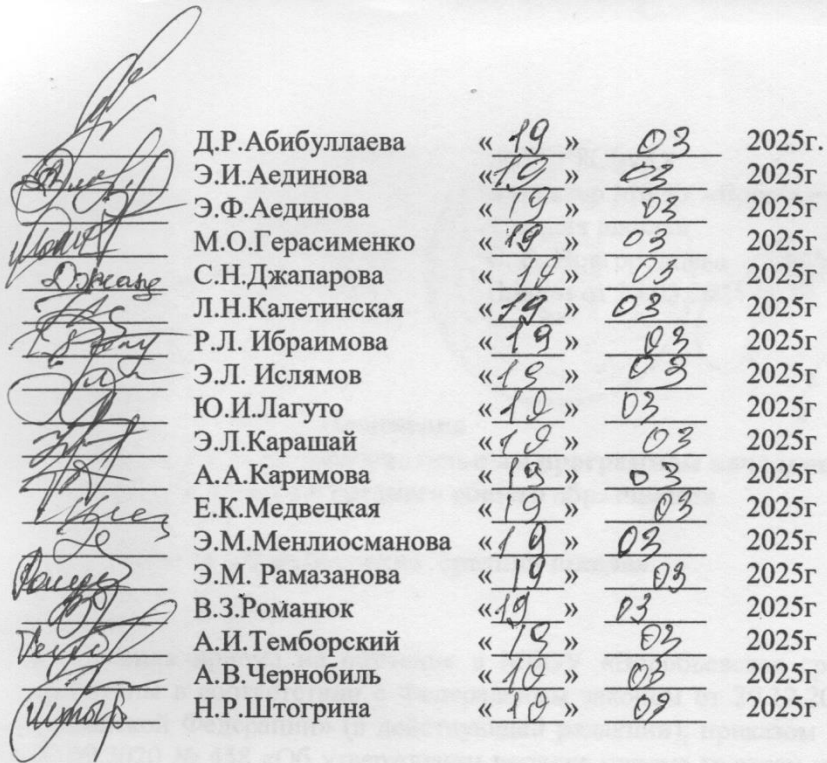 Д.Р.Абибуллаева «19» 03 2025г.
Э.И.Аединова «19» 03 2025г
Э.Ф.Аединова «19» 03 2025г
М.О.Герасименко «19» 03 2025г
С.Н.Джапарова «19» 03 2025г
Л.Н.Калетинская «19» 03 2025г
Р.Л. Ибраимова «19» 03 2025г
Э.Л. Ислямов «19» 03 2025г
Ю.И.Лагуто «19» 03 2025г
Э.Л.Карашай «19» 03 2025г
А.А.Каримова «19» 03 2025г
Е.К.Медвецкая «19» 03 2025г
Э.М.Менлиосманова «19» 03 2025г
Э.М. Рамазанова «19» 03 2025г
В.З.Романюк «19» 03 2025г
А.И.Темборский «19» 03 2025г
А.В.Чернобиль «19» 03 2025г
Н.Р.Штогрина «19» 03 2025г